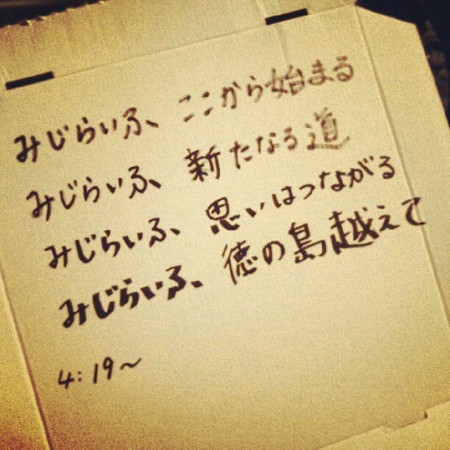 みじらいふ、ここから始まる
みじらいふ、新たなる道
みじらいふ、思いはつながる
みじらいふ、徳の島越えて
4:19〜